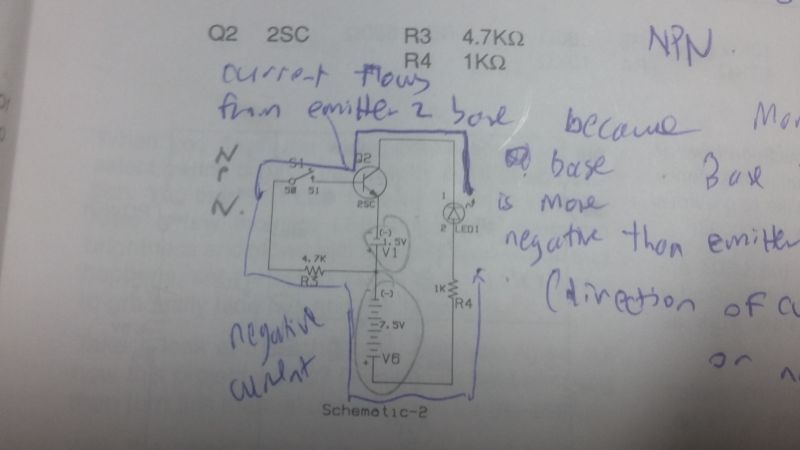 Q2 2SC R3 4.7KΩ NPN.
R4 1KΩ
current flows
from emitter 2 base
became
base Base
is more
negative than emitter
(direction of
or
N
P
N.
S1
S0 S1
Q2
2SC
(-)
1.5V
+ V1
1
2 LED1
4.7K
R3
(-)
7.5V
+ V6
1K
R4
negative
current
Schematic-2